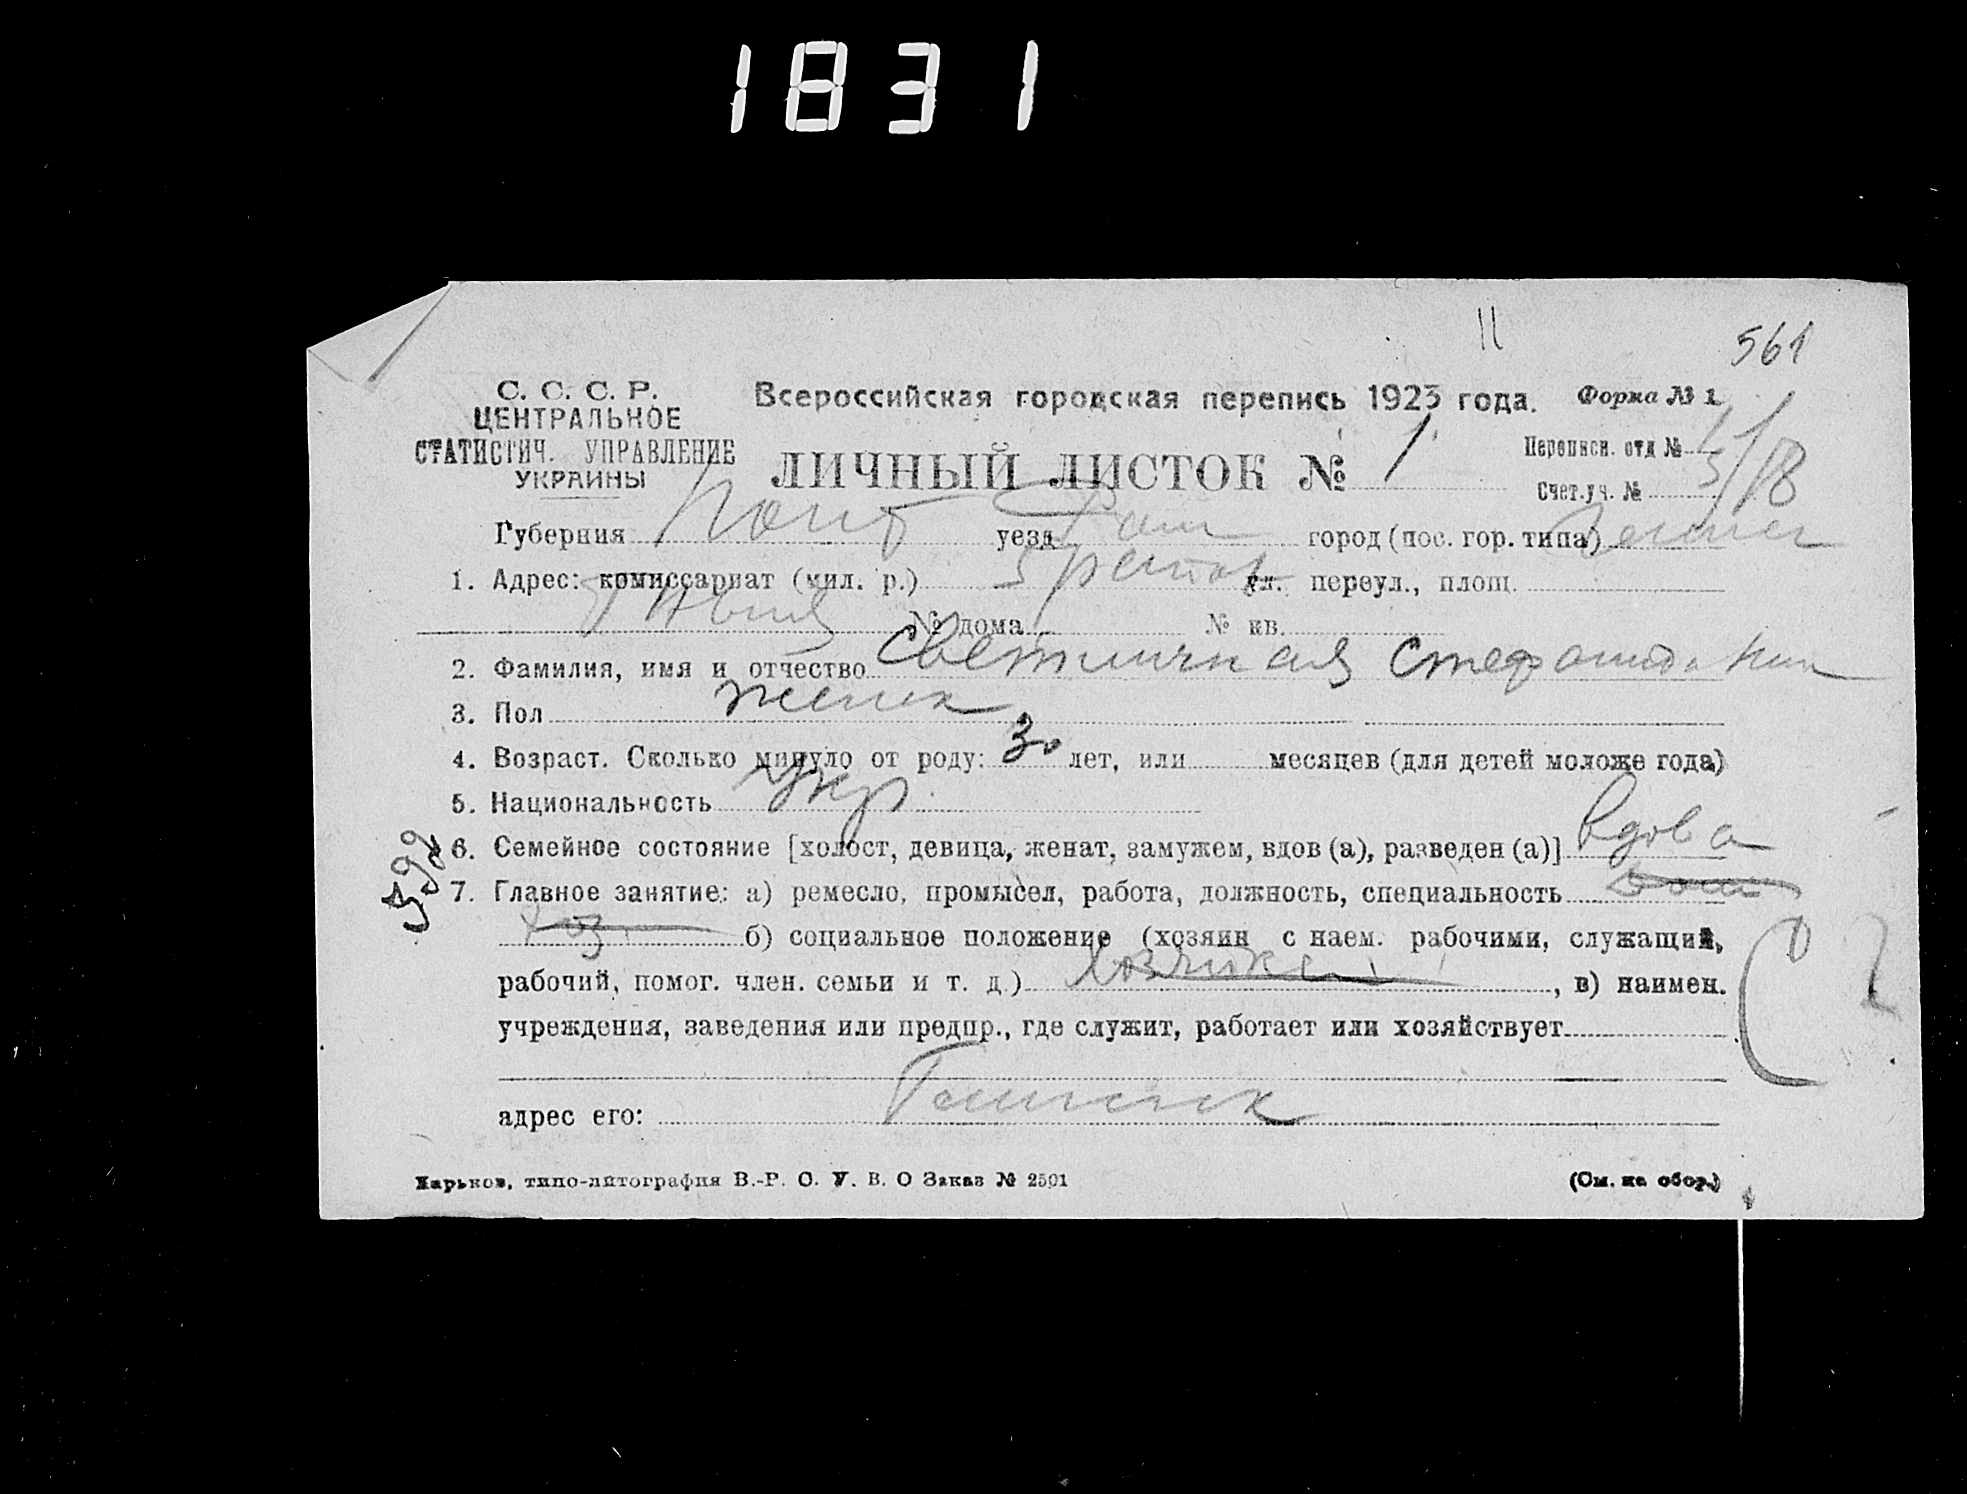 1831
11
561
С. С. С. Р.
ЦЕНТРАЛЬНОЕ
СТАТИСТИЧ. УПРАВЛЕНИЕ
УКРАИНЫ
Всероссийская городская перепись 1923 года. Форма № 1
ЛИЧНЫЙ ЛИСТОК № 1
Переписн. отд №
Счет.уч. № 18
Губерния уезд город (пос. гор. типа)
1. Адрес: комиссариат (мил. р.) ул. переул., площ.
№ дома № кв.
2. Фамилия, имя и отчество Светличная
3. Пол женск
4. Возраст. Сколько минуло от роду: 30 лет, или месяцев (для детей моложе года)
5. Национальность Укр.
592
6. Семейное состояние [холост, девица, женат, замужем, вдов (а), разведен (а)] вдова
7. Главное занятие: а) ремесло, промысел, работа, должность, специальность дом
хоз. б) социальное положение (хозяин с наем. рабочими, служащий,
рабочий, помог. член. семьи и т. д.) , в) наимен.
учреждения, заведения или предпр., где служит, работает или хозяйствует
адрес его:
Харьков, типо-литография В.-Р. С. У. В. О Заказ № 2591
(См. на обор.)